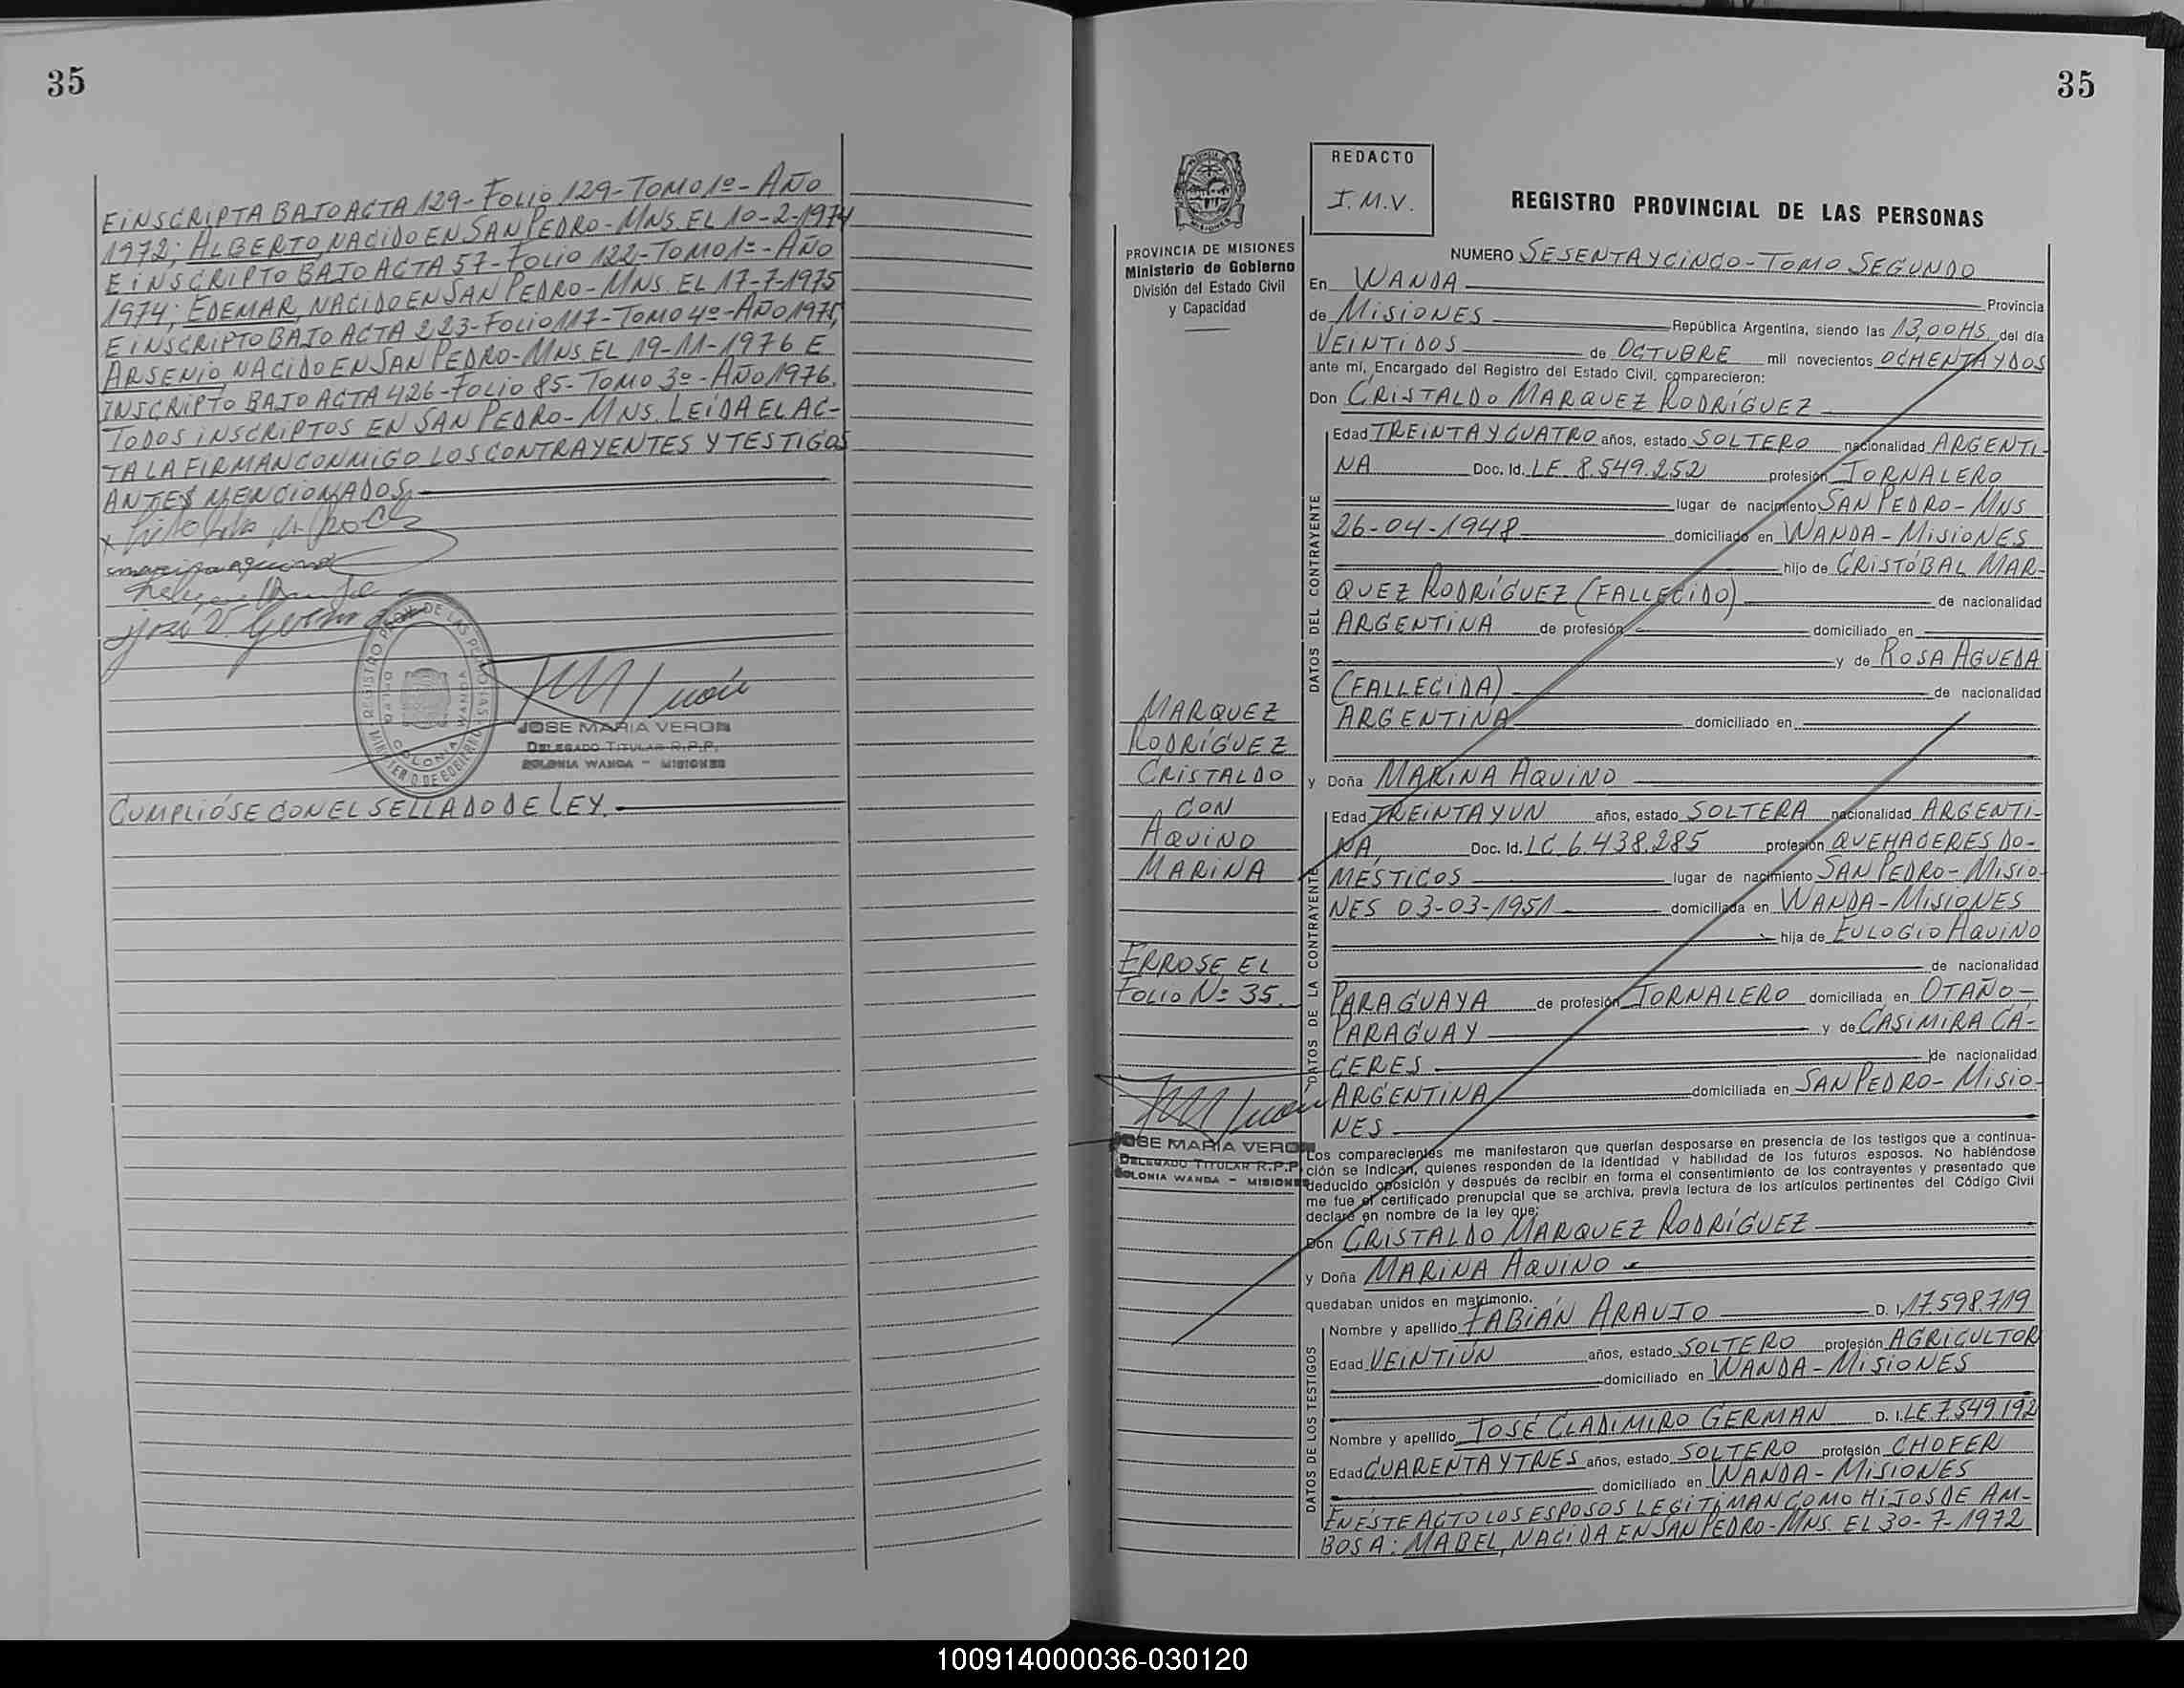 35
EINSCRIPTA BAJO ACTA 129-FOLIO 129-TOMO 1º-AÑO
1972; ALBERTO, NACIDO EN SAN PEDRO-MNS. EL 10-2-1974
E INSCRIPTO BAJO ACTA 57-FOLIO 122-TOMO 1º-AÑO
1974; EDEMAR, NACIDO EN SAN PEDRO-MNS. EL 17-7-1975
E INSCRIPTO BAJO ACTA 223-FOLIO 117-TOMO 4º-AÑO 1975,
ARSENIO, NACIDO EN SAN PEDRO-MNS EL 19-11-1976 E
INSCRIPTO BAJO ACTA 426-FOLIO 85-TOMO 3º-AÑO 1976.
TODOS INSCRIPTOS EN SAN PEDRO-MNS. LEÍDA EL AC-
TA LA FIRMAN CONMIGO LOS CONTRAYENTES Y TESTIGOS
ANTES MENCIONADOS.
marina aquino
JOSE MARIA VERON
DELEGADO TITULAR R.P.P.
COLONIA WANDA - MISIONES
CUMPLIÓSE CON EL SELLADO DE LEY.
35
PROVINCIA DE MISIONES
Ministerio de Gobierno
División del Estado Civil
y Capacidad
REDACTO
I.M.V.
REGISTRO PROVINCIAL DE LAS PERSONAS
NUMERO SESENTA Y CINCO-TOMO SEGUNDO
En WANDA Provincia
de MISIONES República Argentina, siendo las 13,00 HS. del día
VEINTIDOS de OCTUBRE mil novecientos OCHENTA Y DOS
ante mí, Encargado del Registro del Estado Civil, comparecieron:
Don CRISTALDO MARQUEZ RODRÍGUEZ
DATOS DEL CONTRAYENTE
Edad TREINTA Y CUATRO años, estado SOLTERO nacionalidad ARGENTI-
NA Doc. Id. LE 8.549.252 profesión JORNALERO
lugar de nacimiento SAN PEDRO-MNS
26-04-1948 domiciliado en WANDA-MISIONES
hijo de CRISTÓBAL MAR-
QUEZ RODRÍGUEZ (FALLECIDO) de nacionalidad
ARGENTINA de profesión domiciliado en
y de ROSA AGUEDA
(FALLECIDA) de nacionalidad
ARGENTINA domiciliado en
y Doña MARINA AQUINO
DATOS DE LA CONTRAYENTE
Edad TREINTA Y UN años, estado SOLTERA nacionalidad ARGENTI-
NA, Doc. Id. LC. 6.438.285 profesión QUEHACERES DO-
MÉSTICOS lugar de nacimiento SAN PEDRO-MISIO-
NES 03-03-1951 domiciliada en WANDA-MISIONES
hija de EULOGIO AQUINO
de nacionalidad
PARAGUAYA de profesión JORNALERO domiciliada en OTAÑO-
PARAGUAY y de CASIMIRA CÁ-
CERES de nacionalidad
ARGENTINA domiciliada en SAN PEDRO-MISIO-
NES
MARQUEZ
RODRÍGUEZ
CRISTALDO
CON
AQUINO
MARINA
ERROSE EL
FOLIO Nº 35.
JOSE MARIA VERON
DELEGADO TITULAR R.P.P.
COLONIA WANDA - MISIONES
Los comparecientes me manifestaron que querían desposarse en presencia de los testigos que a continua-
ción se indican, quienes responden de la identidad y habilidad de los futuros esposos. No habiéndose
deducido oposición y después de recibir en forma el consentimiento de los contrayentes y presentado que
me fue el certificado prenupcial que se archiva, previa lectura de los artículos pertinentes del Código Civil
declaré en nombre de la ley que:
Don CRISTALDO MARQUEZ RODRÍGUEZ
y Doña MARINA AQUINO
quedaban unidos en matrimonio.
DATOS DE LOS TESTIGOS
Nombre y apellido FABIÁN ARAUJO D. I. 17.598.719
Edad VEINTIÚN años, estado SOLTERO profesión AGRICULTOR
domiciliado en WANDA-MISIONES
Nombre y apellido JOSÉ CLADIMIRO GERMAN D. I. LE. 7.549.192
Edad CUARENTA Y TRES años, estado SOLTERO profesión CHOFER
domiciliado en WANDA-MISIONES
EN ÉSTE ACTO LOS ESPOSOS LEGITIMAN COMO HIJOS DE AM-
BOS A: MABEL, NACIDA EN SAN PEDRO-MNS. EL 30-7-1972
100914000036-030120